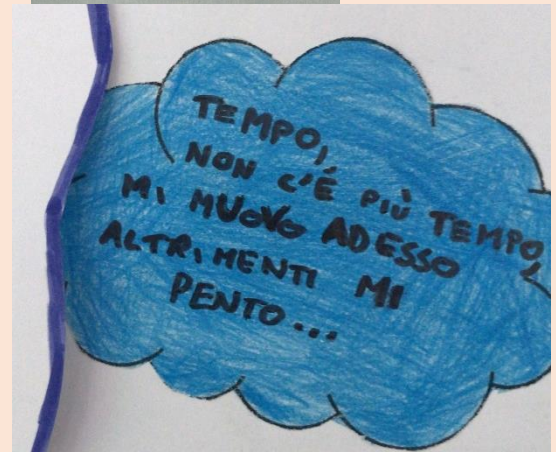 TEMPO,
NON C'É PIÙ TEMPO,
MI MUOVO ADESSO
ALTRIMENTI MI
PENTO...